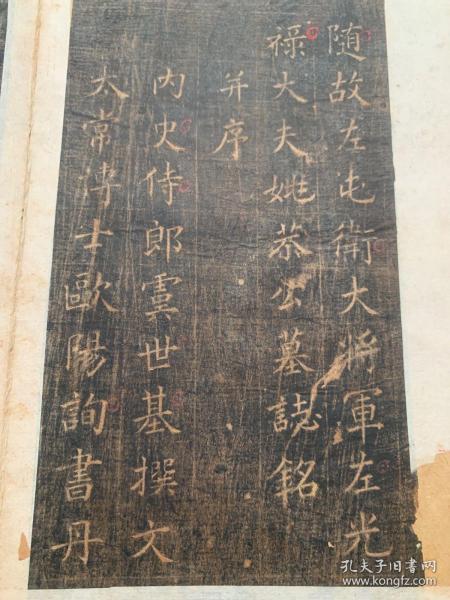 随故左屯衛大將軍左光
禄大夫姚恭公墓誌銘
并序
内史侍郎虞世基撰文
太常博士歐陽詢書丹
孔夫子旧书网
www.kongfz.com